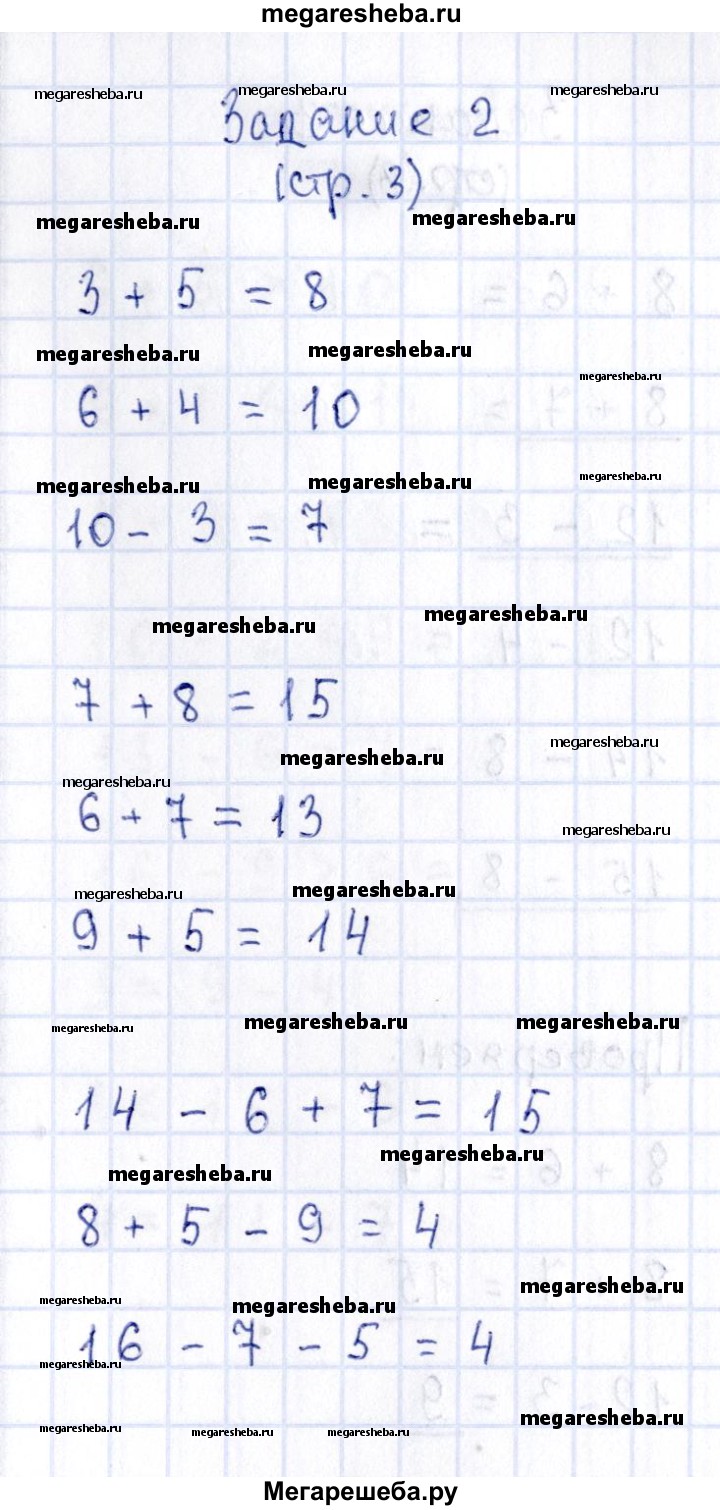 megaresheba.ru
megaresheba.ru megaresheba.ru megaresheba.ru
Задание 2
(стр. 3)
megaresheba.ru megaresheba.ru
3 + 5 = 8
megaresheba.ru megaresheba.ru
megaresheba.ru
6 + 4 = 10
megaresheba.ru megaresheba.ru megaresheba.ru
10 - 3 = 7
megaresheba.ru megaresheba.ru
7 + 8 = 15
megaresheba.ru megaresheba.ru
megaresheba.ru
6 + 7 = 13
megaresheba.ru
megaresheba.ru megaresheba.ru
9 + 5 = 14
megaresheba.ru megaresheba.ru megaresheba.ru
14 - 6 + 7 = 15
megaresheba.ru megaresheba.ru
8 + 5 - 9 = 4
megaresheba.ru megaresheba.ru megaresheba.ru
16 - 7 - 5 = 4
megaresheba.ru
megaresheba.ru megaresheba.ru megaresheba.ru megaresheba.ru
Мегарешеба.ру